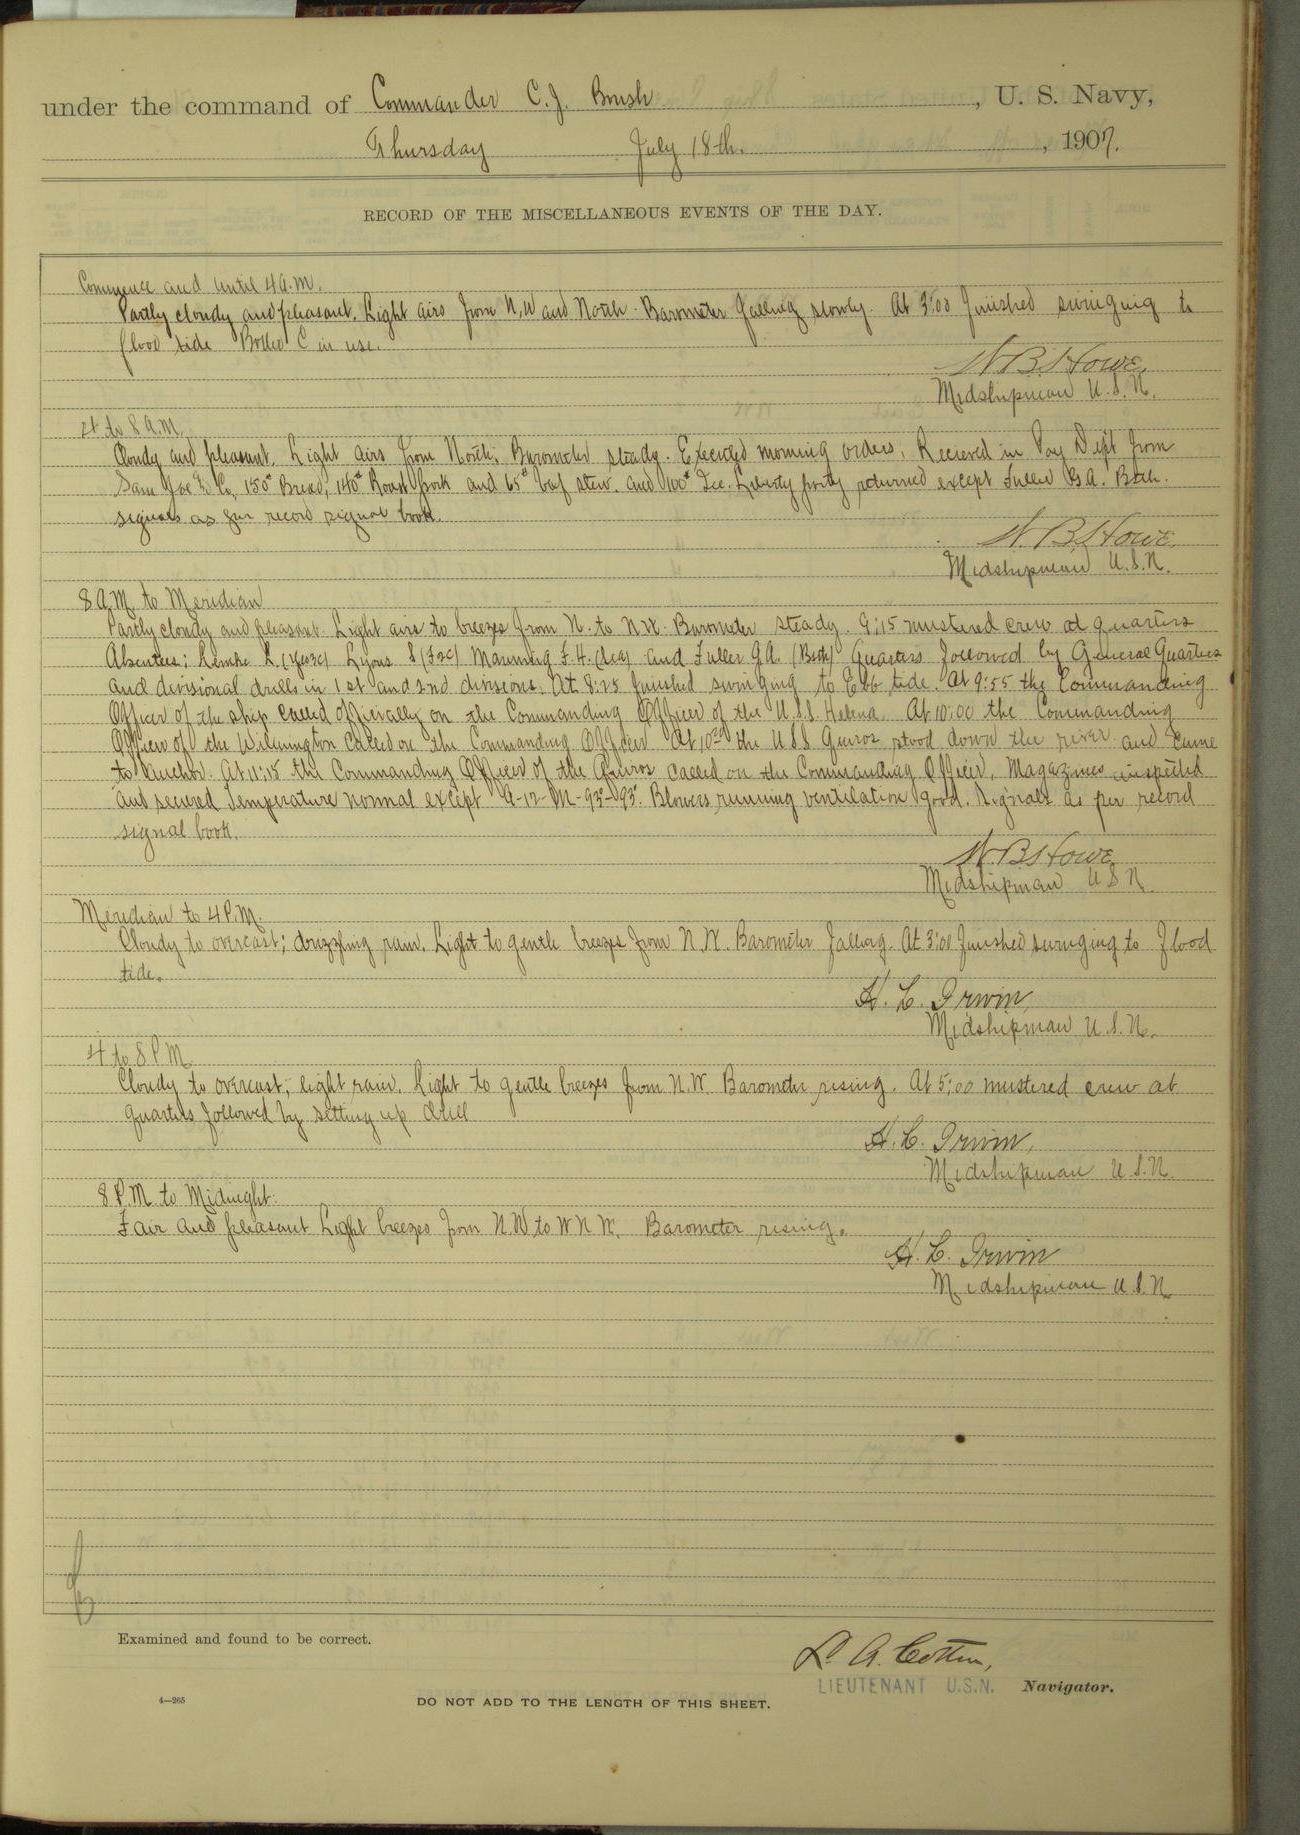 under the command of Commander C.J. Boush, U. S. Navy,
Thursday July 18th., 1907.
RECORD OF THE MISCELLANEOUS EVENTS OF THE DAY.
Commence and until 4 A.M.
Partly cloudy and pleasant. Light airs from N,W and North. Barometer falling slowly. At 3:00 finished swinging to
flood tide Boiler C in use.
W B Howe,
Midshipman U.S.N.
4 to 8 A.M.
Cloudy and pleasant. Light airs from North. Barometer steady. Executed morning orders. Recieved in Pay Dept from
Sam Joe & Co, 150# Bread, 140# Roast pork and 65# beef stew. and 100# Ice. Liberty party returned except Fuller G.A.
signals as per record signal book.
W. B. Howe,
Midshipman U.S.N.
8 A.M. to Meridian
Partly cloudy and pleasant. Light airs to breezes from N. to N.W. Barometer steady. 9:15 mustered crew at quarters
Absentees; Lemke R. Lyons S (F2c) Manning F.H. (Sea) and Fuller G.A. Quarters followed by General Quarters
and divisional drills in 1st and 2nd divisions. At 8:25 finished swinging to Ebb tide. At 9:55 the Commanding
Officer of the ship called officially on the Commanding Officer of the U.S.S. Helena. At 10:00 the Commanding
Officer of the Wilmington called on the Commanding Officer. At the U S S Quiros stood down the river and came
to anchor. At 11:15 the Commanding Officer of the Quiros called on the Commanding Officer. Magazines inspected
and secured Temperature normal except A-12-M-93°-93°. Blowers running ventilation good. Signals as per record
signal book.
W B Howe
Midshipman U S N.
Meridian to 4 P.M.
Cloudy to overcast; drizzling rain. Light to gentle breezes from N.W. Barometer falling. At 3:00 finished swinging to flood
tide.
H. C. Irwin,
Midshipman U.S.N.
4 to 8 P M
Cloudy to overcast, light rain. Light to gentle breezes from N.W. Barometer rising. At 5:00 mustered crew at
quarters followed by setting up drill
H. C. Irwin,
Midshipman U.S.N.
8 P.M. to Midnight.
Fair and pleasant Light breezes from N.W to W N W. Barometer rising.
H. C. Irwin
Midshipman U.S.N.
Examined and found to be correct.
L. A. Cotten,
LIEUTENANT U.S.N. Navigator.
4—265
DO NOT ADD TO THE LENGTH OF THIS SHEET.